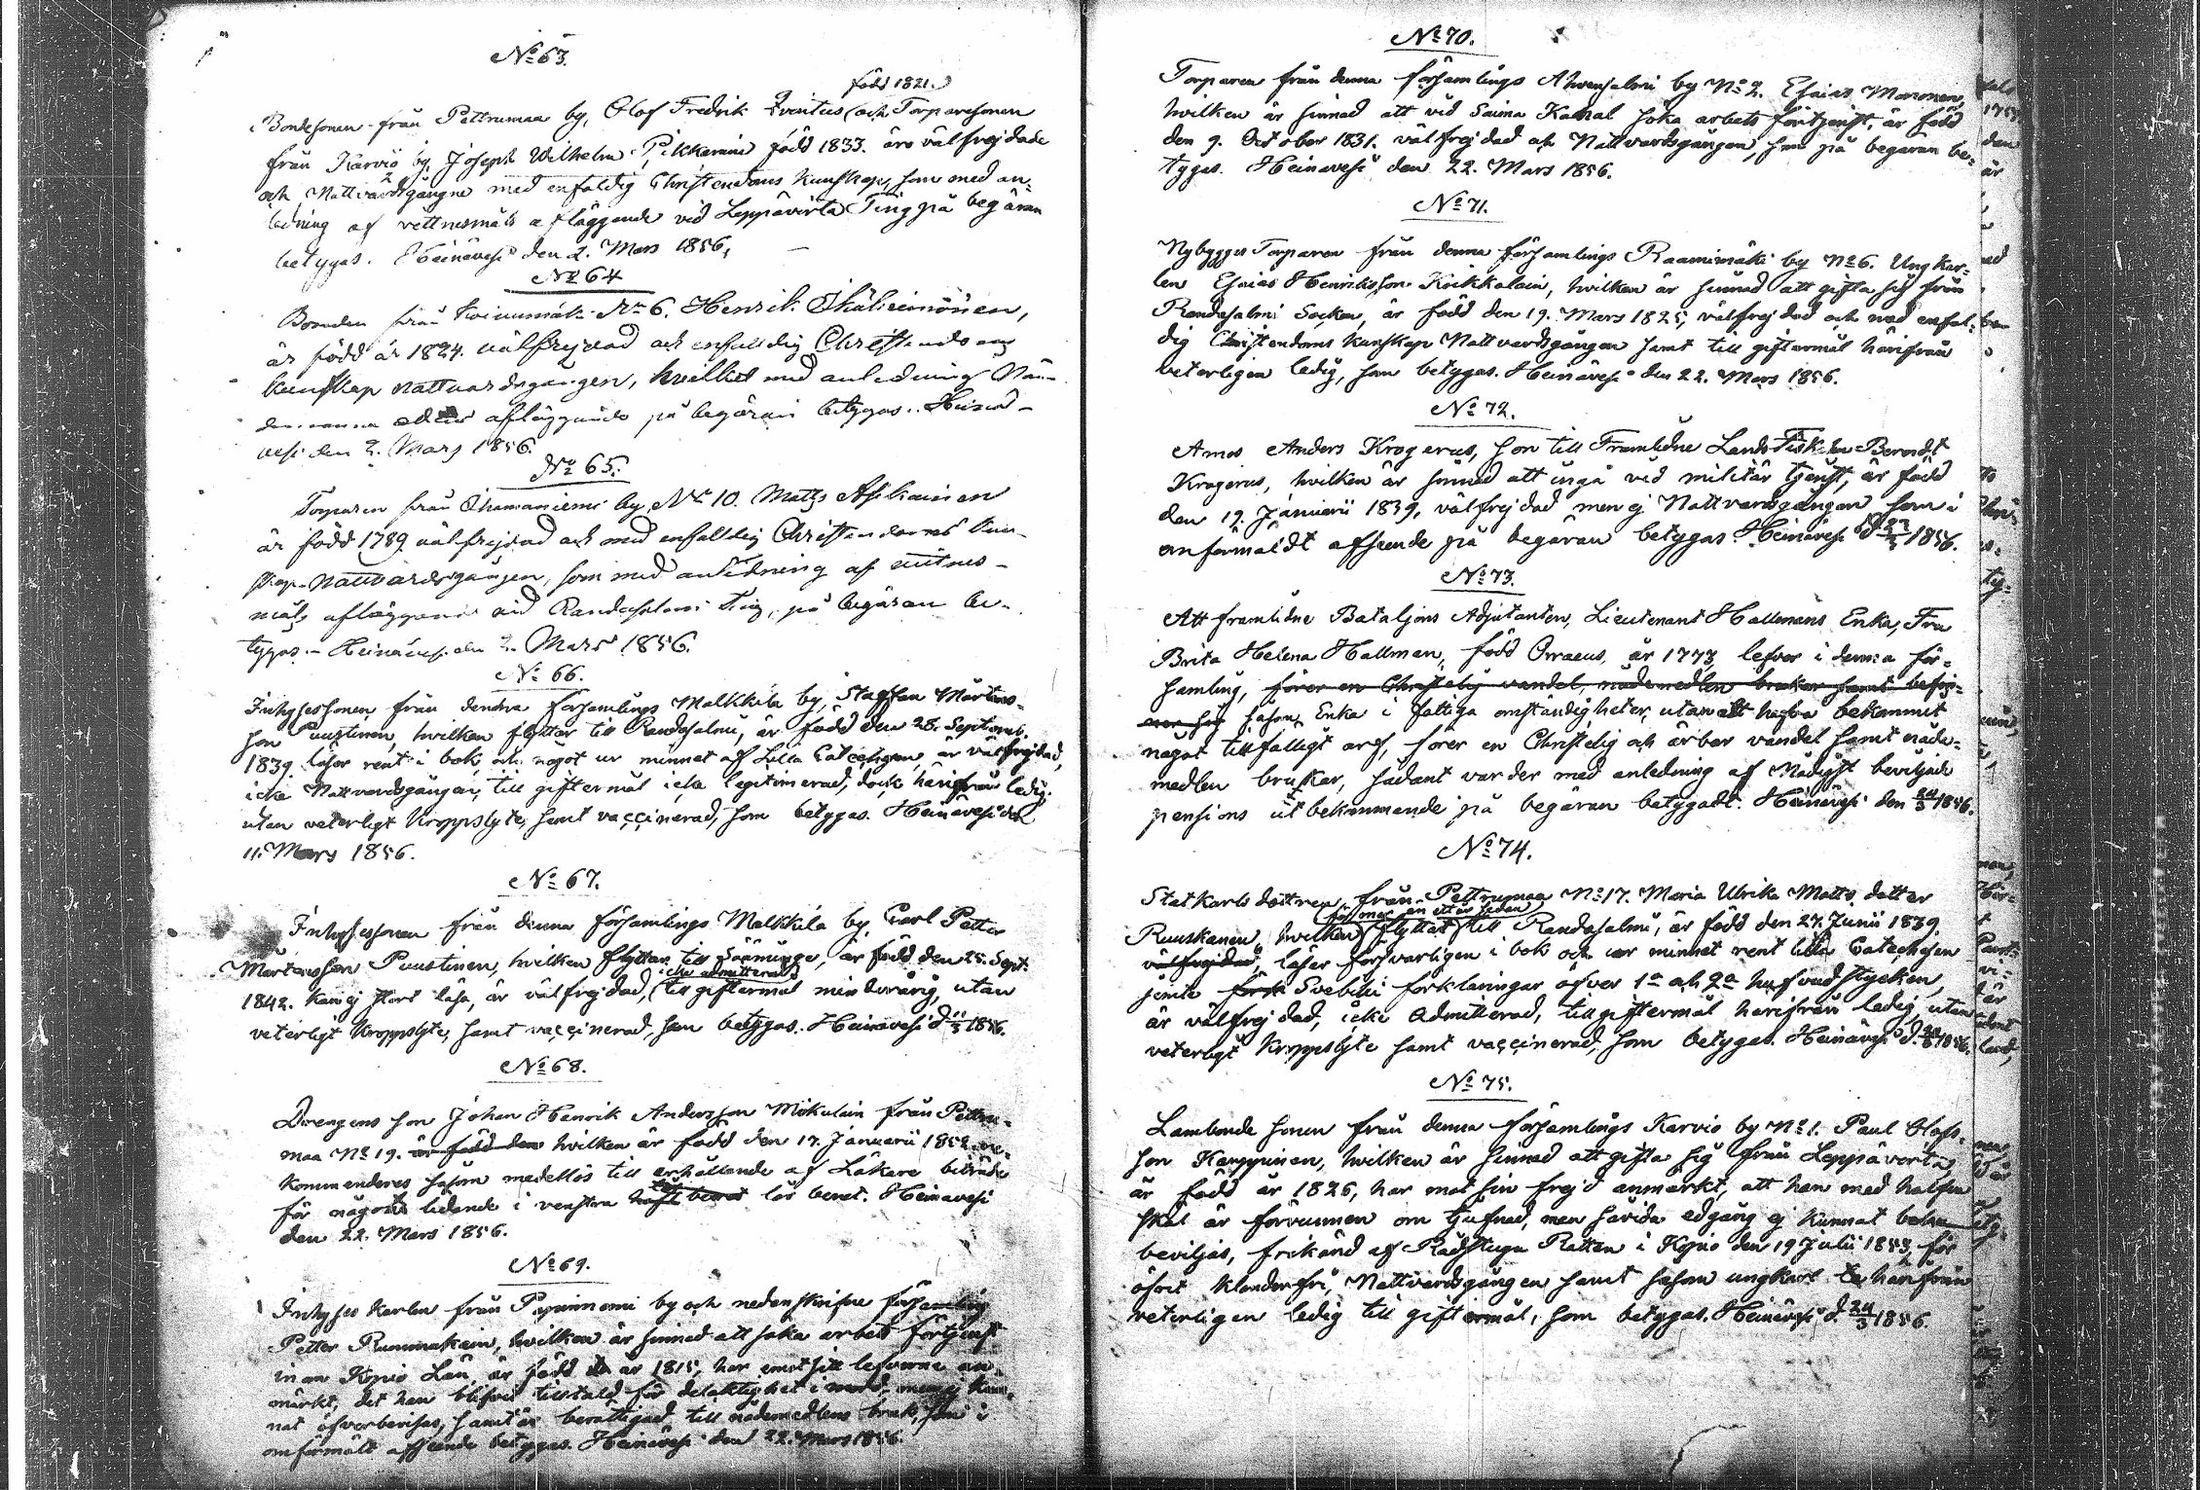 No 63.
född 1821.
Bondesonen från Pettrumaa by, Olof Fredrik Qvintus (och Torparesonen
från Karviö by Joseph Wilhelm Pikkarainen född 1833. äro välfrejdade
och Nattvardsgångne med enfaldig Christendoms kunskap, som med an-
ledning af vittnesmåls afläggande vid Leppävirta Ting på begäran
betygas. Heinävesi den 2. Mars 1856.
No 64
Bonden från No 6. Henrik
är född år 1824. välfrejdad och enfaldig Christendoms
kunskap nattvardsgången, hvilket med anledning
afläggande på begäran betygas. Heinä-
vesi den 2. Mars 1856.
No 65.
Torparen från Ihamaniemi by No 10. Matts Asikainen
är född 1789 välfrejdad och med enfaldig Christendoms kun-
skap nattvardsgången, som med anledning af vittnes-
måls afläggande vid Randasalmi Ting, på begäran be-
tygas. Heinävesi den 2. Mars 1856.
No 66.
Inhysessonen från denna församlings Malkkila by, Staffan Mårtens-
son Puustinen, hvilken flyttar till Randasalmi, är född den 28. Septemb.
1839. läser rent i bok och något ur minnet af Lilla Catechesen, är välfrejdad,
icke Nattvardsgången, till giftermål icke legitimerad, dock härifrån ledig.
utan veterligt kroppslyte, samt vaccinerad, som betygas. Heinävesi den
11. Mars 1856.
No 67.
Inhysessonen från denna församlings Malkkila by, Carl Petter
Mårtensson Puustinen, hvilken flyttar till Sääminge, är född den 25. Sept.
icke admitterad
1842. kan ej stort läsa, är välfrejdad, (till giftermål minderårig, utan
veterligt kroppslyte, samt vaccinerad, som betygas. Heinävesi d 11/3 1856.
No 68.
Drengens son Johan Henrik Andersson Mikulain från Pettru-
maa No 19. är född den hvilken är född den 17. Januarii 1852. re-
kommenderas såsom medellös till erhållande af Läkare biträde
för någon lidande i venstra lår benet. Heinävesi
den 22. Mars 1856.
No 69.
Inhyses karlen från Papinniemi by och nedanskrifne församling
Petter Rummukain, hvilken är sinnad att söka arbets förtjenst
inom Kopio Län, är född år 1815, har emot sitt lefverne an-
märkt, det han blifvit tilltald för delaktighet i mord, men ej kun-
nat öfverbevisas, samt är berättigad till nådemedlens bruk, som i
omförmält afseende betygas. Heinävesi den 22. Mars 1856.
No 70.
Torparen från denna församlings Ahvensalmi by No 2. Esaias Maronen,
hvilken är sinnad att vid Saima Kanal söka arbets förtjenst, är född
den 9. October 1831. välfrejdad och Nattvardsgången, som på begäran be-
tygas. Heinävesi den 22. Mars 1856.
No 71.
Nybygges Torparen från denna församlings Raamimäki by No 6. Ung kar-
len Esaias Henriksson Kirkkalain, hvilken är sinnad att gifta sig från
Randasalmi Socken, är född den 19. Mars 1825, välfrejdad och med enfal-
dig Christendoms kunskap Nattvardsgången samt till giftermål härifrån
veterligen ledig, som betygas. Heinävesi den 22. Mars 1856.
No 72.
Amos Anders Krogerus, son till Framlidne Lands Fiskalen Berndt
Krogerus, hvilken är sinnad att ingå vid militär tjenst, är född
den 19. Januarii 1839, välfrejdad men ej Nattvardsgången som i
omförmäldt afseende på begäran betygas. Heinävesi d 1856.
No 73.
Att framlidne Bataljons Adjutanten, Lieutenant Hallmans Enka, Fru
Brita Helena Hallman, född Orraeus, år 1773, lefver i denna för-
samling, förer en Christelig vandel, nådemedlen brukar samt befin-
ner sig såsom Enka i fattiga omständigheter, utan att hafva bekommit
något tillfälligt arf, förer en Christelig och ärbar vandel samt nåde-
medlen brukar, sådant varder med anledning af Nådigst beviljade
pensions utbekommande på begäran betygadt. Heinävesi den 24/3 1856.
No 74.
Statkarls dottren från Pettrumaa No 17. Maria Ulrika Matts dotter
för mer än ett år sedan
Ruuskanen, hvilken flyttat till Randasalmi, är född den 27. Junii 1839.
välfrejdad, läser försvarligen i bok och ur minnet rent lilla Catechesen
jemte Svebilii förklaringar öfver 1a och 2a hufvudstycken,
är välfrejdad, icke Admitterad, till giftermål härifrån ledig, utan
veterligt kroppslyte samt vaccinerad, som betygas. Heinävesi d. 1856.
No 75.
Lambonde sonen från denna församlings Karvio by No 1. Paul Olofs-
son Karppinen, hvilken är sinnad att gifta sig från Leppävirta,
är född år 1826, har mot sin frejd anmärkt, att han med half
skäl är förvunnen om tjufnad, men edgång ej kunnat
beviljas, frikänd af Rådstugu Rätten i Kopio den 19 Julii 1853, för
öfrit klanderfri, Nattvardsgången samt såsom ungkarl härifrån
veterligen ledig till giftermål, som betygas. Heinävesi d. 24/3 1856.